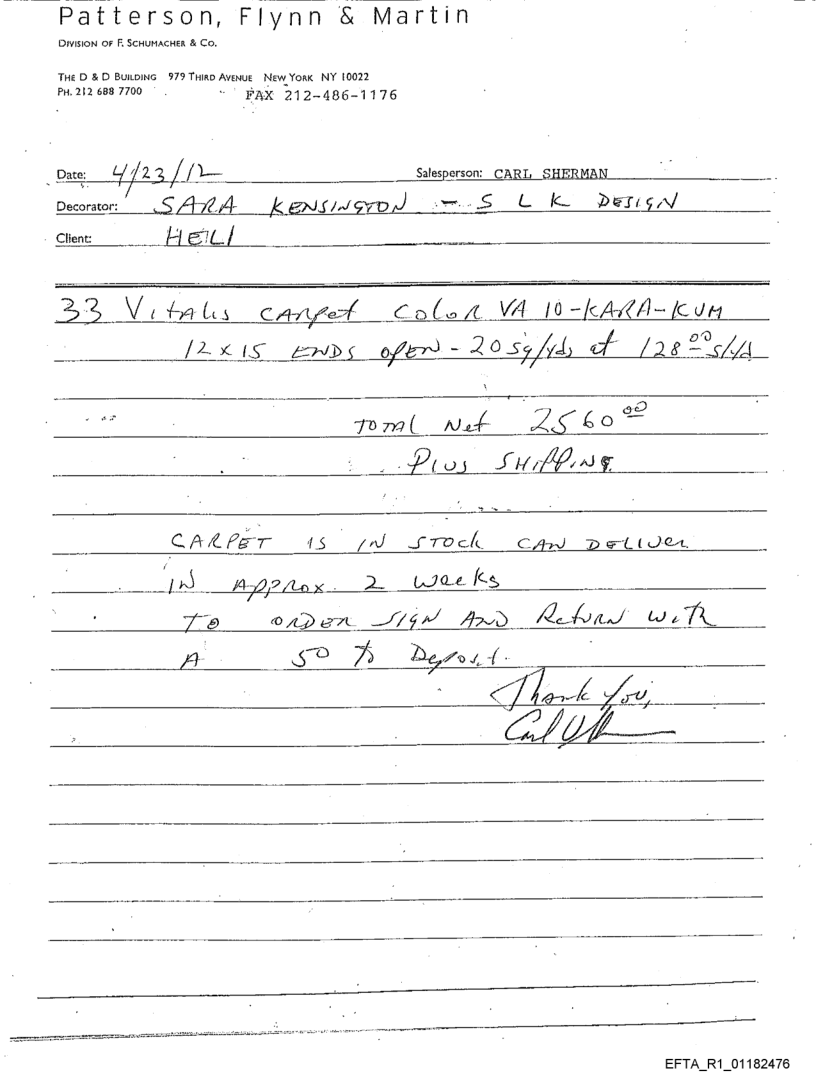 Patterson, Flynn & Martin
DIVISION OF F. SCHUMACHER & CO.
THE D & D BUILDING 979 THIRD AVENUE NEW YORK NY 10022
PH. 212 688 7700 FAX 212-486-1176
Date: 4/23/12 Salesperson: CARL SHERMAN
Decorator: SARA KENSINGTON - S L K DESIGN
Client: HEILI
33 Vitalis CARpet COLOR VA 10-KARA-KUM
12 x 15 ENDS OPEN - 20 sq/yds at 128.00 s/yd
TOTAL Net 2560.00
Plus SHIPPING
CARPET IS IN STOCK CAN DELIVER
IN APPROX. 2 Weeks
TO ORDER SIGN AND Return With
A 50 % Deposit.
Thank You,
Carl
EFTA_R1_01182476